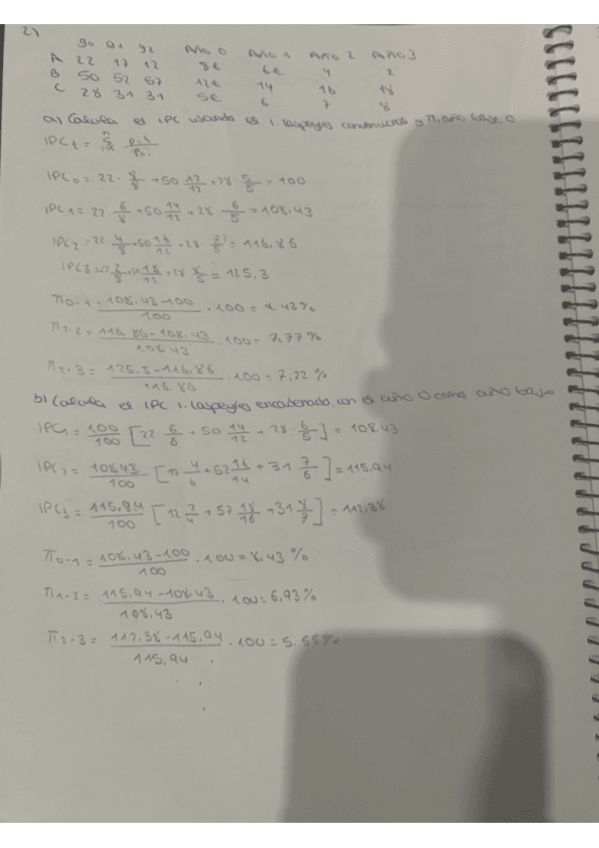 2)
90 91 92 Año 0 Año 1 Año 2 Año 3
A 22 17 12 8€ 6€ 4 2
B 50 52 57 12€ 14 16 18
C 28 31 31 5€ 6 7 8
a) Calcula el IPC usando el I. Laspeyres y π, año base 0
IPC₀ = 22 · 8/8 + 50 12/12 + 28 5/5 = 100
IPC1 = 22 6/8 + 50 14/12 + 28 6/5 = 108.43
IPC2 = 22 4/8 + 50 16/12 + 28 7/5 = 116,86
IPC3 = 22 2/8 + 50 18/12 + 28 8/5 = 125,3
π0-1 = 108.43-100/100 · 100 = 8.43%
π1-2 = 116.86-108.43/108.43 · 100 = 7,77%
π2-3 = 125,3-116,86/116.86 · 100 = 7,22%
b) Calcula el IPC I. Laspeyres encadenado, con el año 0 como año base
IPC1 = 100/100 [22 6/8 + 50 14/12 + 28 · 6/5] = 108.43
IPC2 = 108.43/100 [ 4/6 + 52 16/14 + 31 7/6] = 115,94
IPC3 = 115,94/100 [12 2/4 + 57 18/16 + 31 8/7] =
π0-1 = 108,43-100/100 · 100 = 8,43%
π1-2 = 115,94-108.43/108,43 · 100 = 6,93%
π2-3 = -115,94/115,94 · 100 =